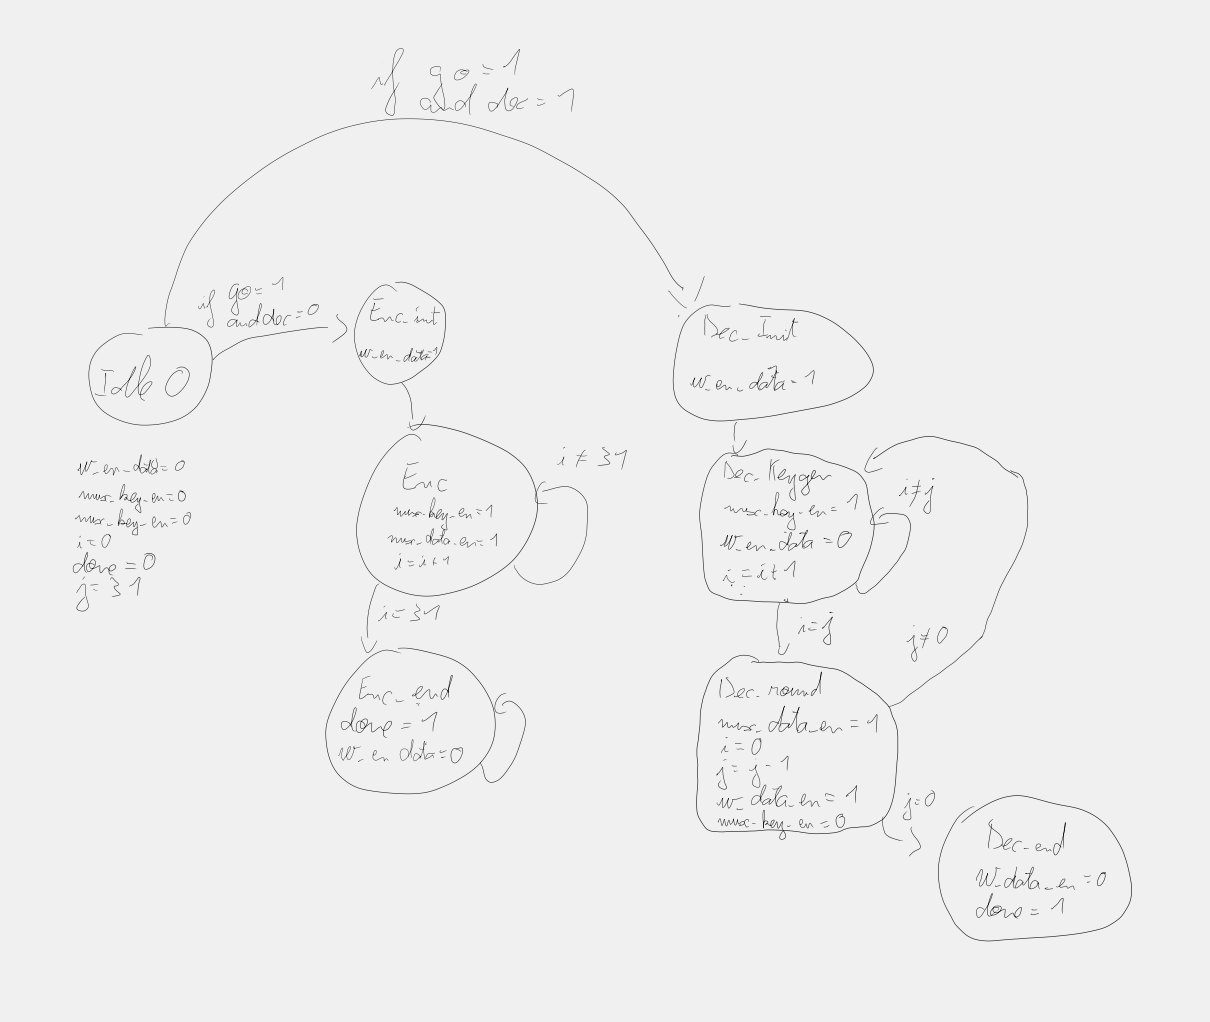 if go=1
and dec=1
if go=1
and dec=0
Idle 0
w_en_data=0
mux_key_en=0
mux_key_en=0
i=0
done=0
j=31
Enc_init
w_en_data=1
Enc
mux_key_en=1
mux_data_en=1
i=i+1
i≠31
i=31
Enc_end
done=1
w_en data=0
Dec_Init
w_en_data=1
Dec_Keygen
mux_key_en=1
w_en_data=0
i=i+1
i≠j
i=j
j≠0
Dec_round
mux_data_en=1
i=0
j=j-1
w_data_en=1
mux_key_en=0
j=0
Dec_end
w_data_en=0
done=1